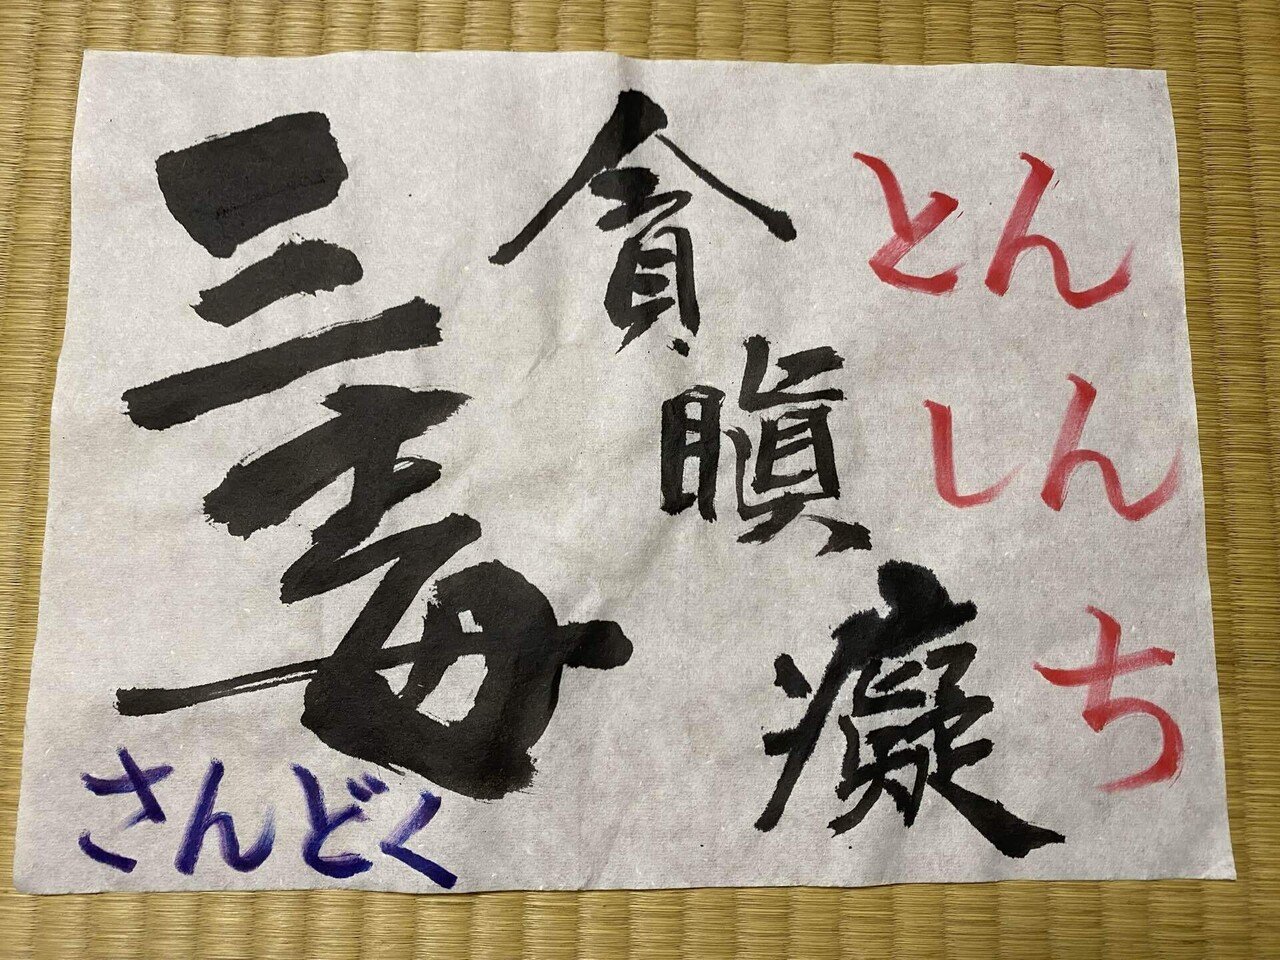 三毒
さんどく
貪 とん
瞋 しん
癡 ち